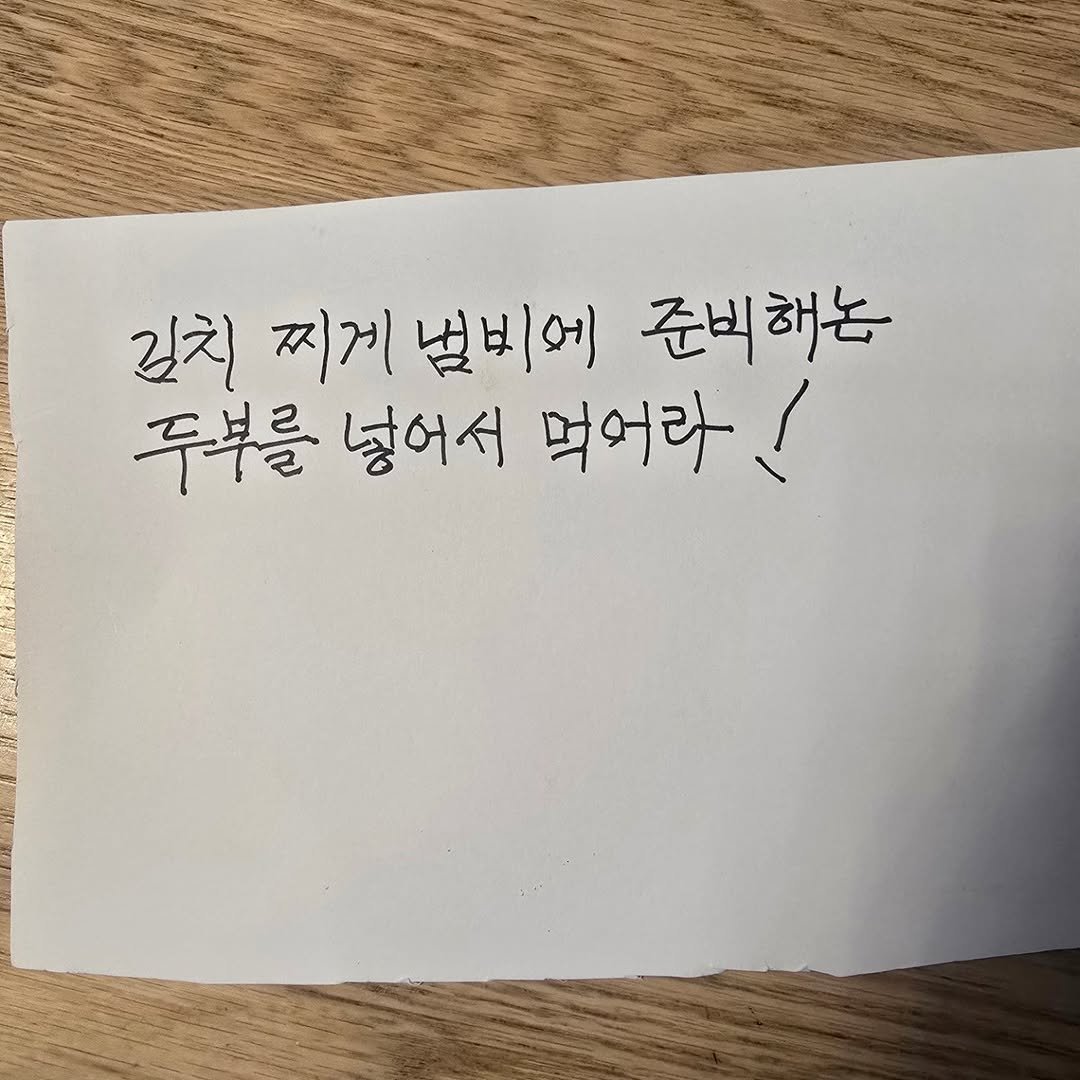 김치 찌게 냄비에 준비해논
두부를 넣어서 먹어라!